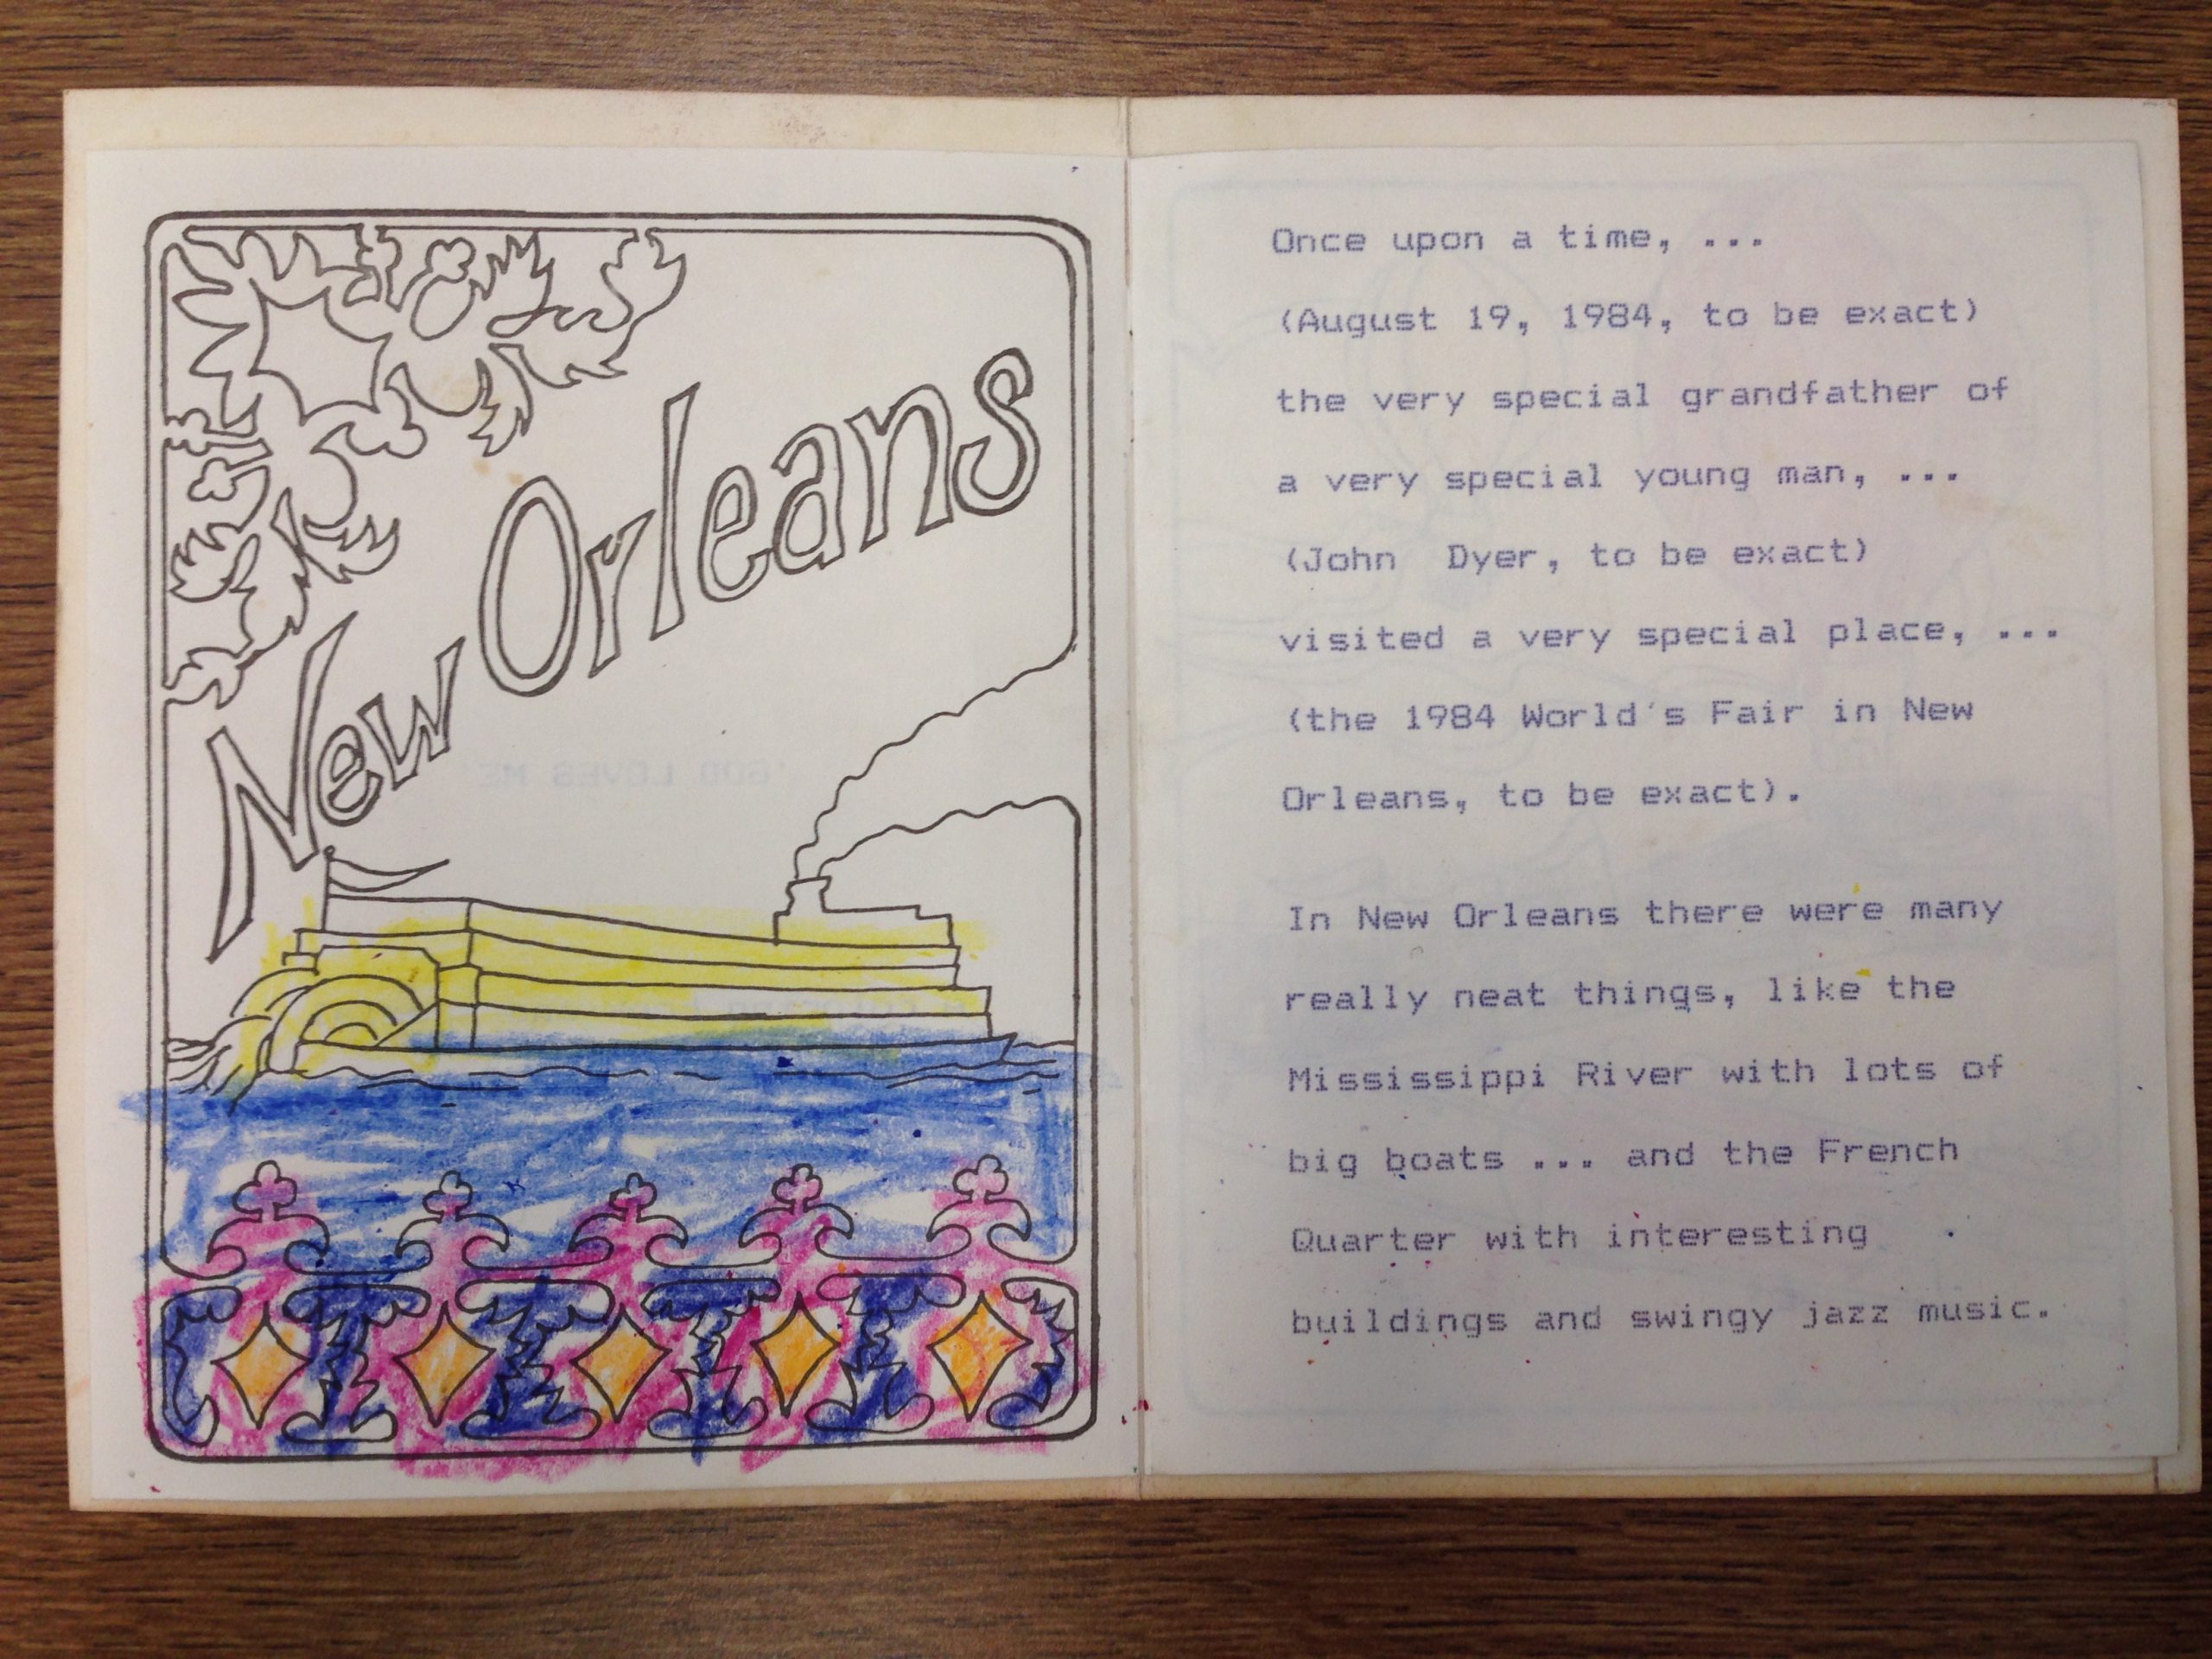 New Orleans
Once upon a time, ...
(August 19, 1984, to be exact)
the very special grandfather of
a very special young man, ...
(John Dyer, to be exact)
visited a very special place, ...
(the 1984 World's Fair in New
Orleans, to be exact).
In New Orleans there were many
really neat things, like the
Mississippi River with lots of
big boats ... and the French
Quarter with interesting
buildings and swingy jazz music.
GOD LOVES ME